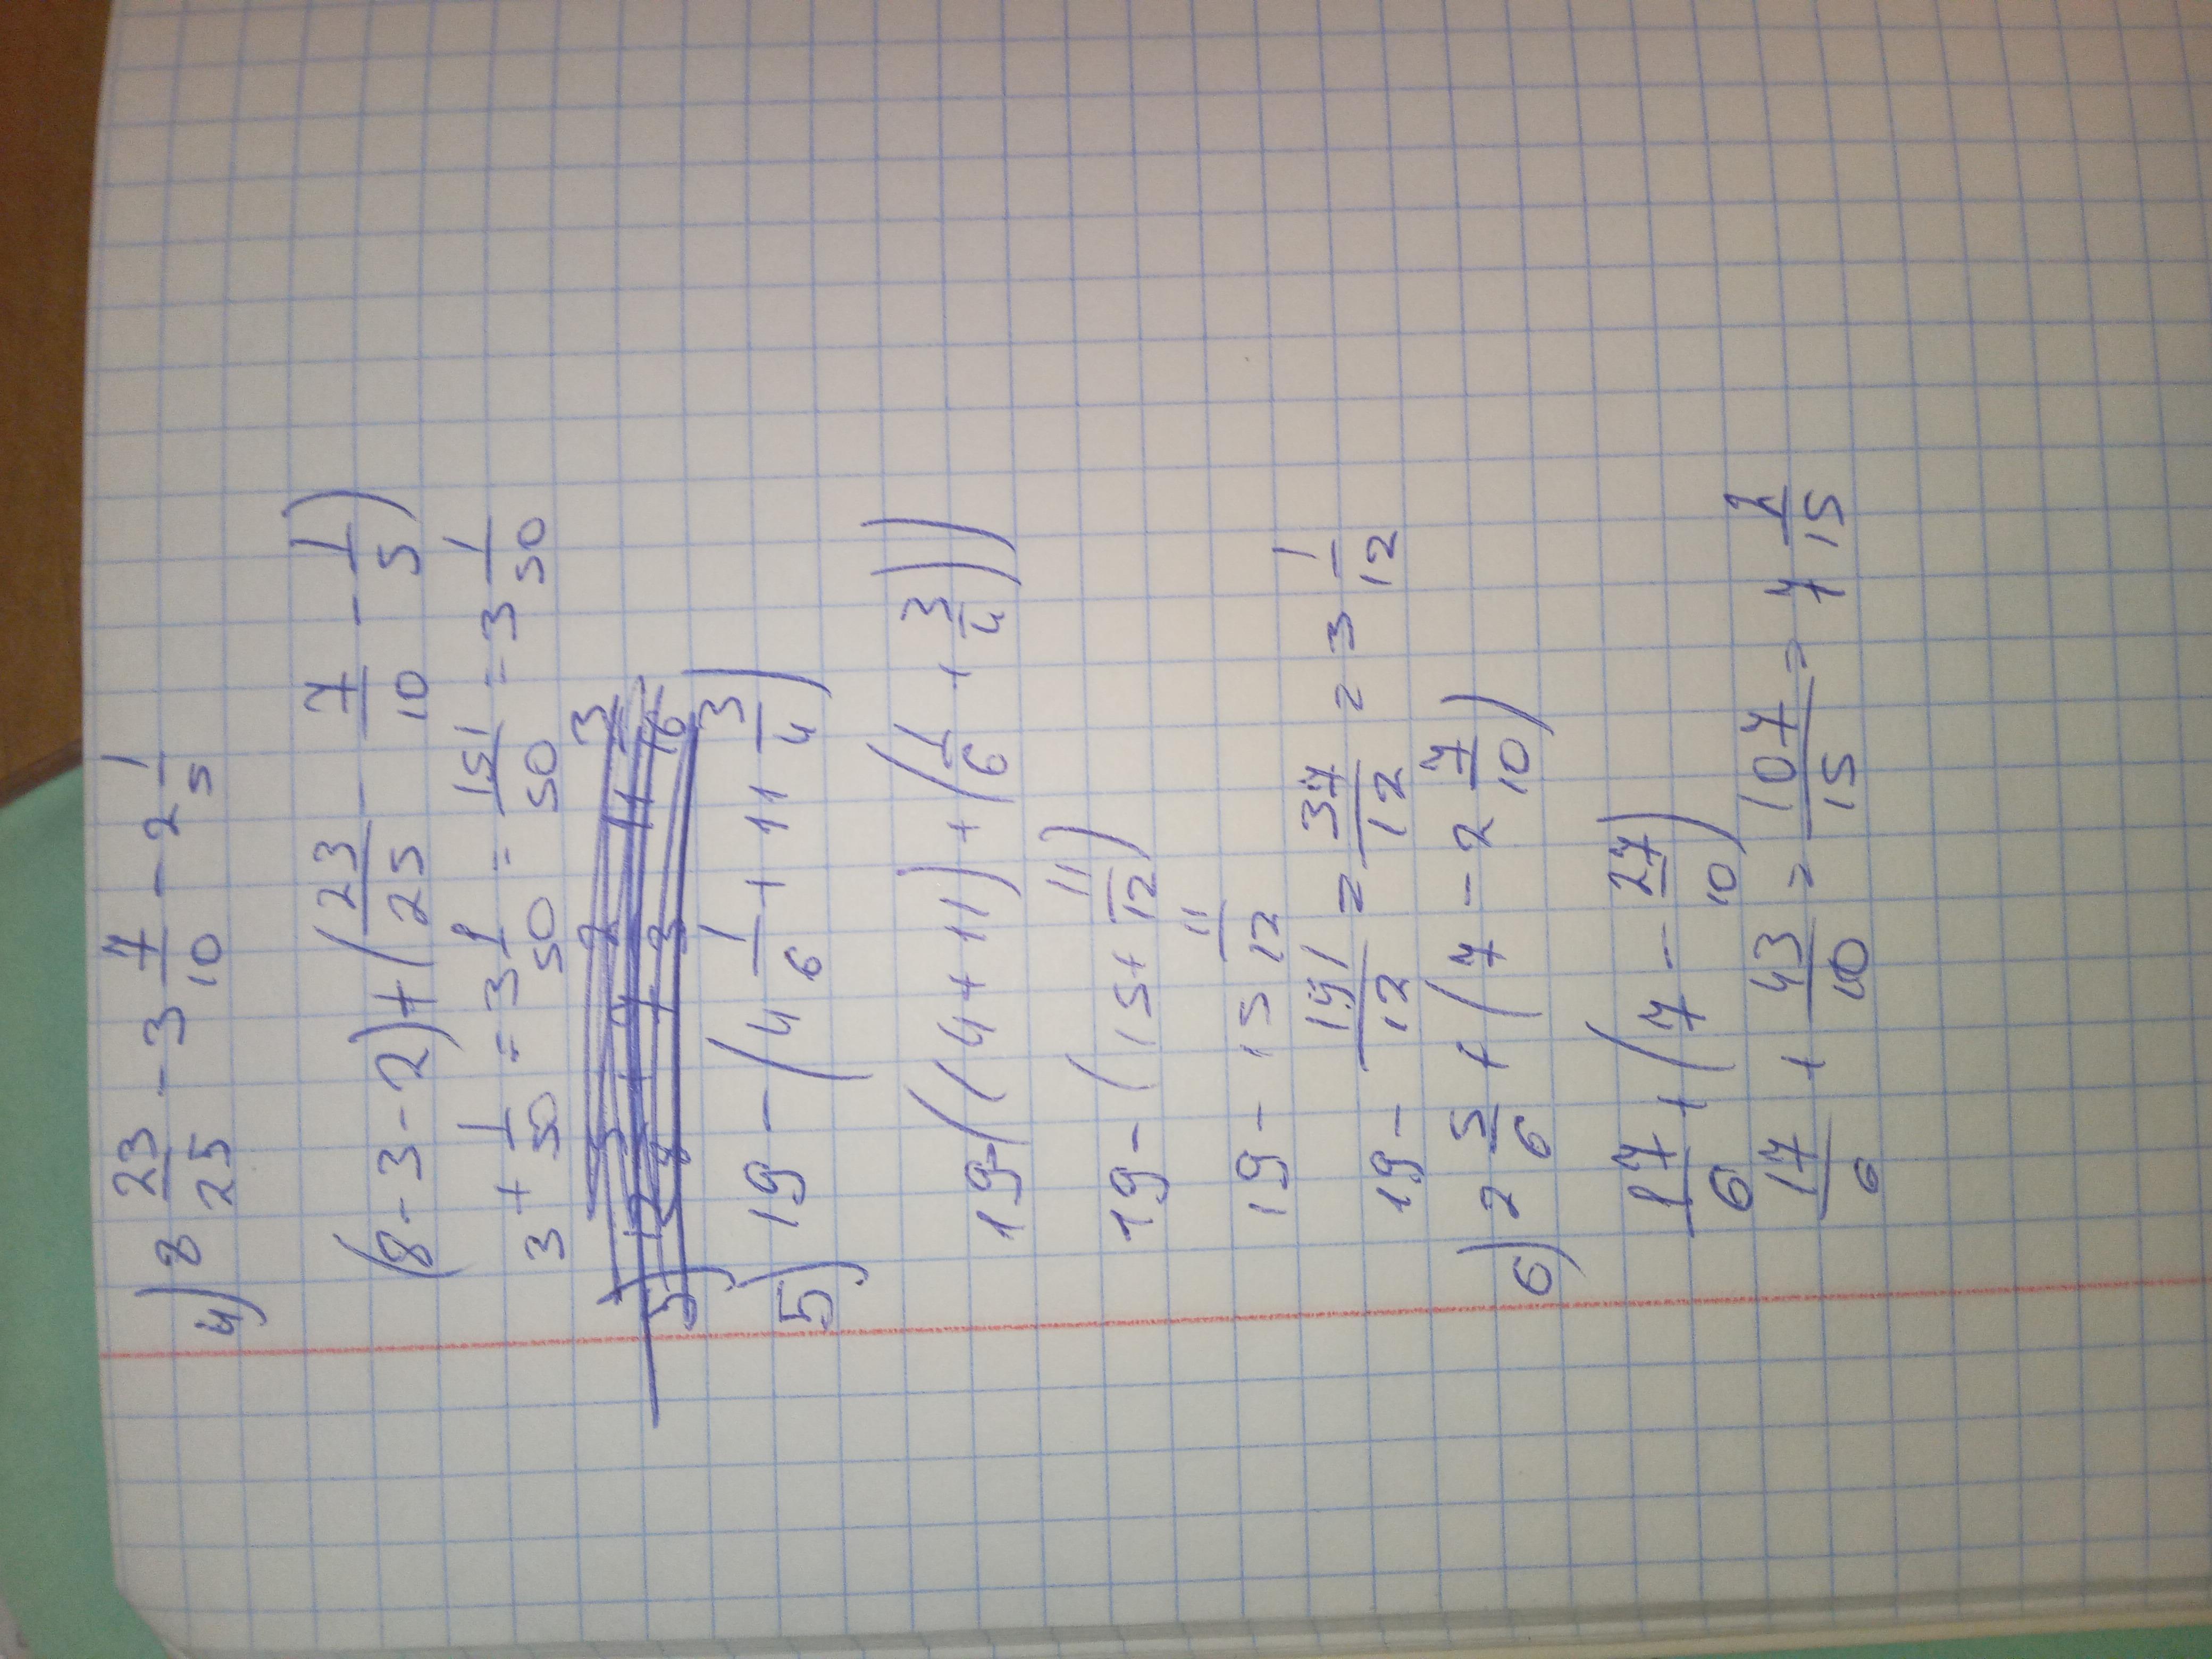 4) 8 23/25 - 3 7/10 - 2 1/5
(8-3-2)+(23/25 - 7/10 - 1/5)
3+1/50 = 3 1/50 = 151/50 - 3 1/50
5) 19 - (4 1/6 + 11 3/4)
19-((4+11)+(1/6+3/4))
19-(15+11/12)
19- 15 11/12
19- 191/12 = 37/12 = 3 1/12
6) 2 5/6 + (7 - 2 7/10)
17/6 + (7 - 27/10)
17/6 + 43/10 = 107/15 = 7 2/15